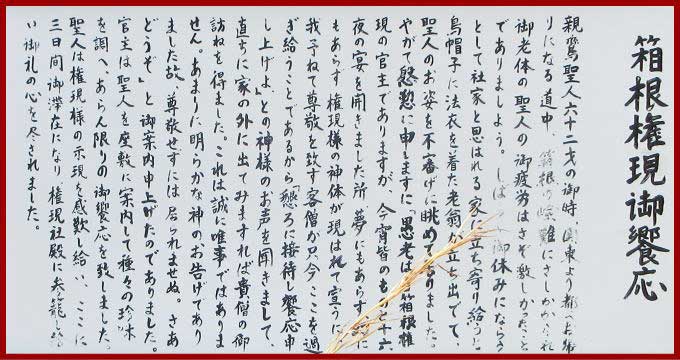 箱根権現御饗応
親鸞聖人六十二才の御時 関東より都へお帰
りになる道中、箱根の嶮難にさしかかられ
御老体の聖人の御疲労はさぞ激しかったこと
でありましょう。しば 御休みになら
として社家と思はれる家 立ち寄り給う
烏帽子に法衣を着た老翁が立ち出でて、
聖人のお姿を不審げに眺めておりました
やがて慇懃に申しますに「愚老は箱根権
現の官主でありますが、今宵皆のもと十六
夜の宴を開きました所、夢にもあらず に
もあらず権現様の神体が現はれて宣うに
我かねて尊敬を致す客僧が只今ここを過
ぎ給うことであるから「懇ろに接待し饗応申
し上げよ」との神様のお声を聞きまして、
直ちに家の外に出てみますれば貴僧の御
訪ねを得ました。これは誠に唯事ではありま
せん。あまりに明らかな神のお告げであり
ました故、尊敬せずには居られませぬ。さあ
どうぞ。」と御案内申上げたのでありました。
官主は聖人を座敷に案内して種々の珍味
を調へあらん限りの御饗応を致しました。
聖人は権現様の示現を感歎し給い、ここに
三日間御滞在になり権現社殿に参籠し給
い御礼の心を尽されました。